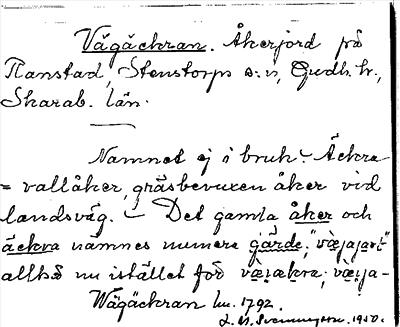 Vägäckran. Åkerjord på
Ranstad, Stenstorps s:n, Gudh. hr.,
Skarab. län.
Namnet ej i bruk. Äckra
= vallåker, gräsbevuxen åker vid
landsväg. – Det gamla åker och
äckra nämnes numera gärde;
alltså nu istället för
Wägäckran hu. 1792.
1950.